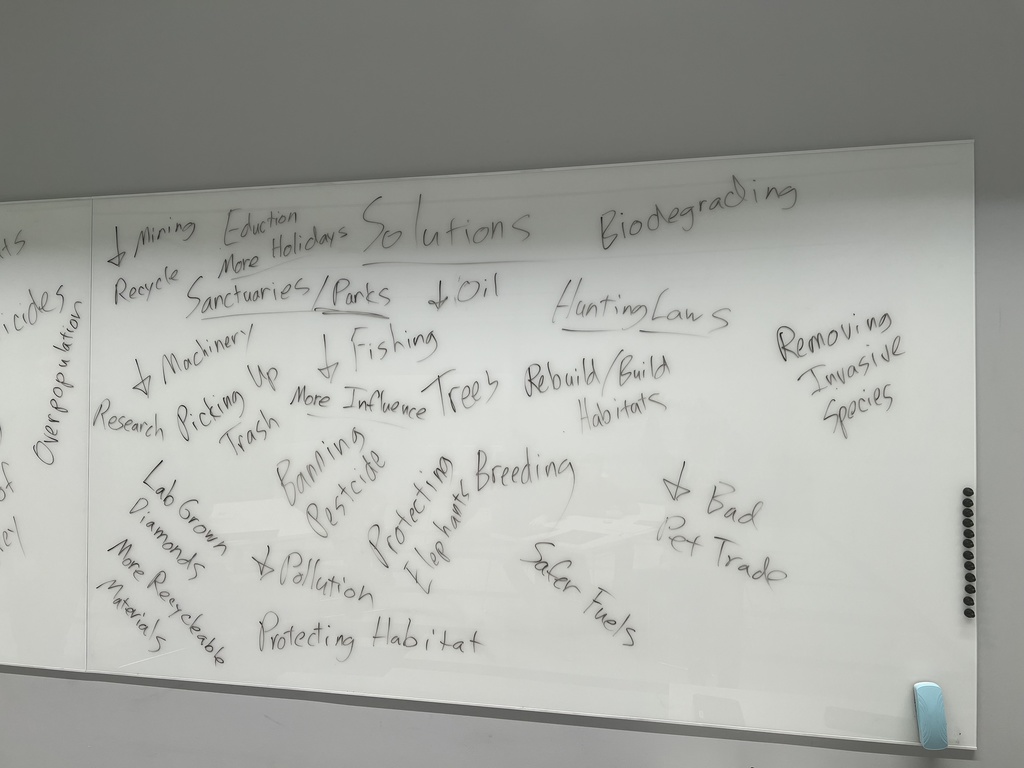 Solutions
↓ Mining
Eduction
More Holidays
Biodegrading
Recycle
Sanctuaries/Parks
↓ Oil
Hunting Laws
↓ Machinery
↓ Fishing
Removing
Invasive
Species
Research
Picking Up
Trash
More Influence
Trees
Rebuild/Build
Habitats
Banning
Pesticide
Protecting
Elephants
Breeding
↓ Bad
Pet Trade
Lab Grown
Diamonds
More Recycleable
Materials
↓ Pollution
Safer Fuels
Protecting Habitat
Overpopulation